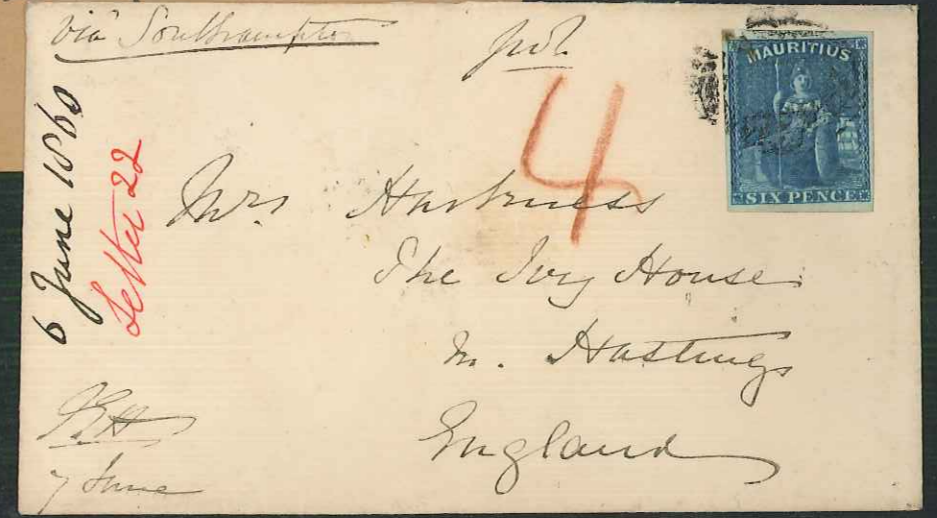 via Southampton
pd.
MAURITIUS
SIX PENCE
4
6 June 1860
Letter 22
Mrs Harkness
The Ivy House
nr. Hastings
England
7 June